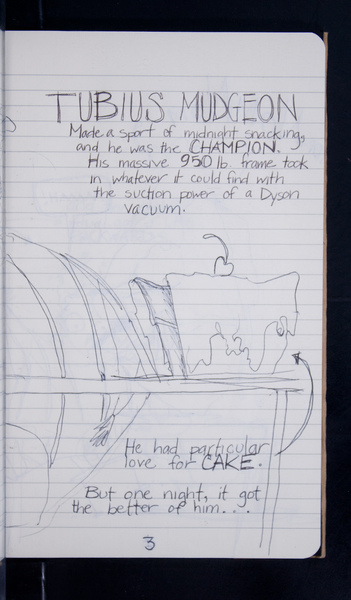 TUBIUS MUDGEON
Made a sport of midnight snacking,
and he was the CHAMPION.
His massive 950 lb. frame took
in whatever it could find with
the suction power of a Dyson
vacuum.
He had particular
love for CAKE.
But one night, it got
the better of him...
3